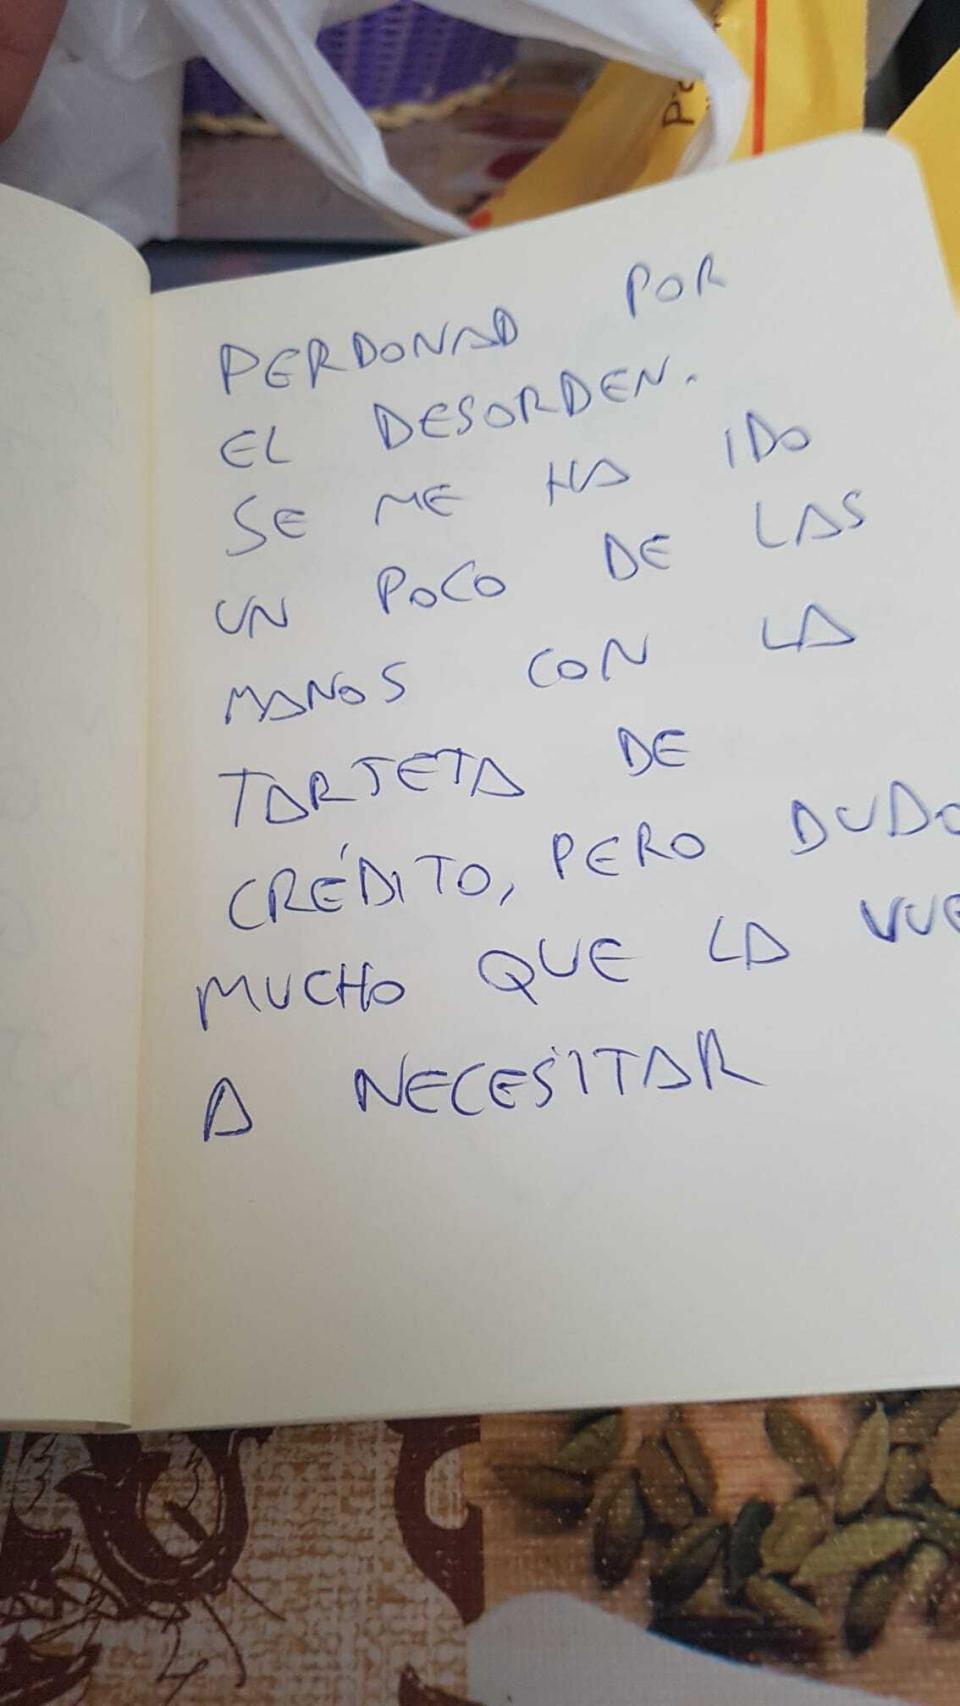 PERDONAD POR
EL DESORDEN.
SE ME HA IDO
UN POCO DE LAS
MANOS CON LA
TARJETA DE
CRÉDITO, PERO DUDO
MUCHO QUE LA VUE
A NECESITAR